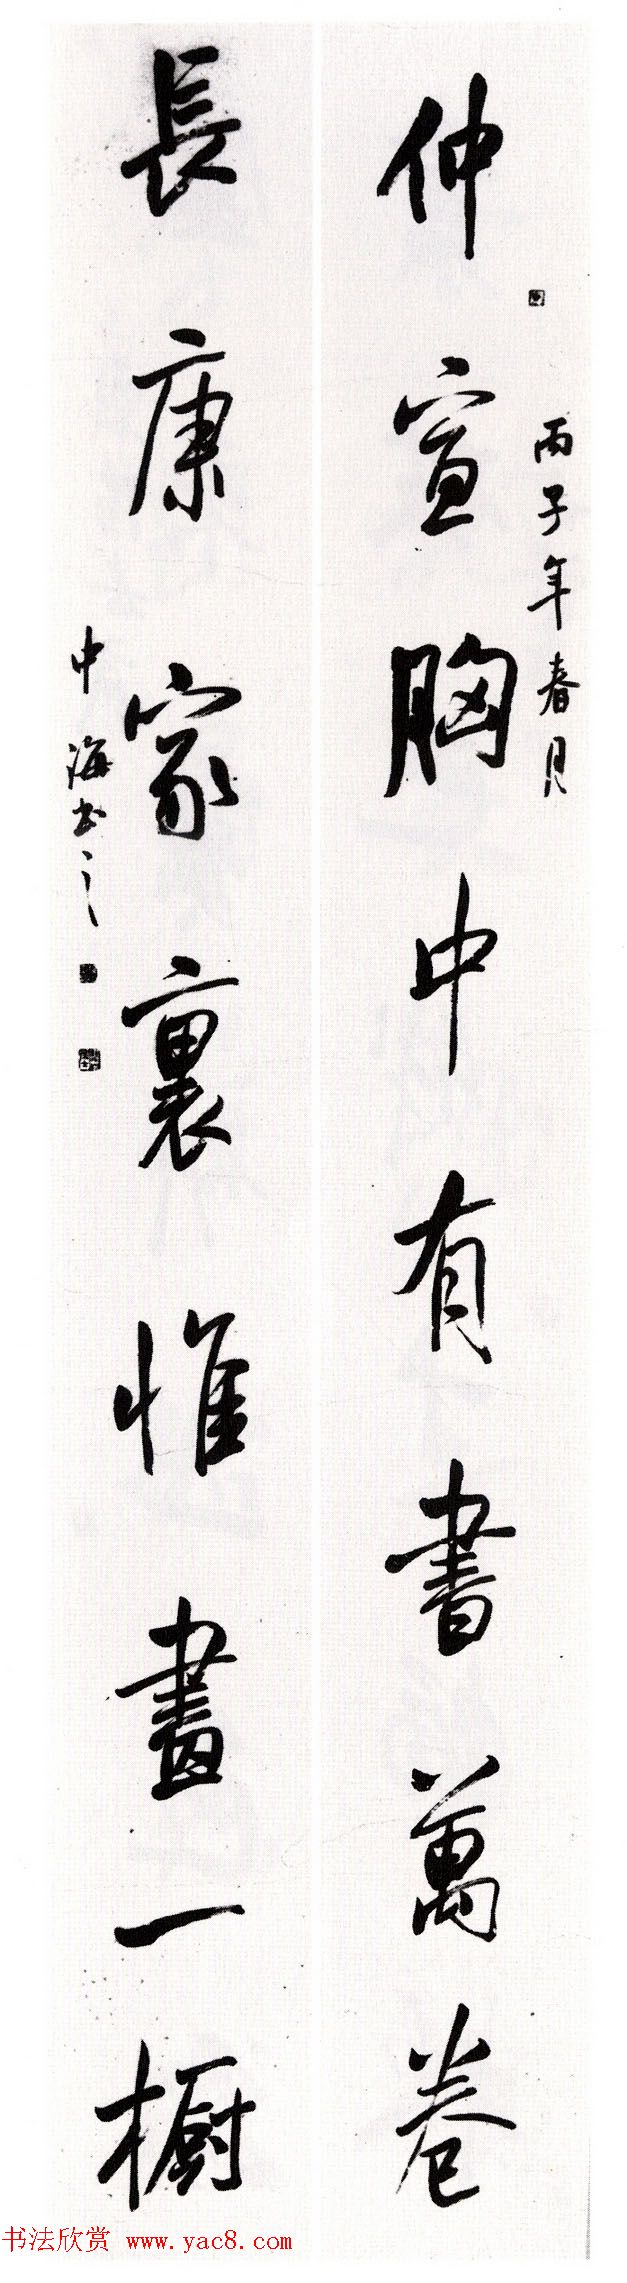 丙子年春月
仲宣胸中有書萬卷
長康家裏惟畫一櫥
中海书之
书法欣赏 www.yac8.com